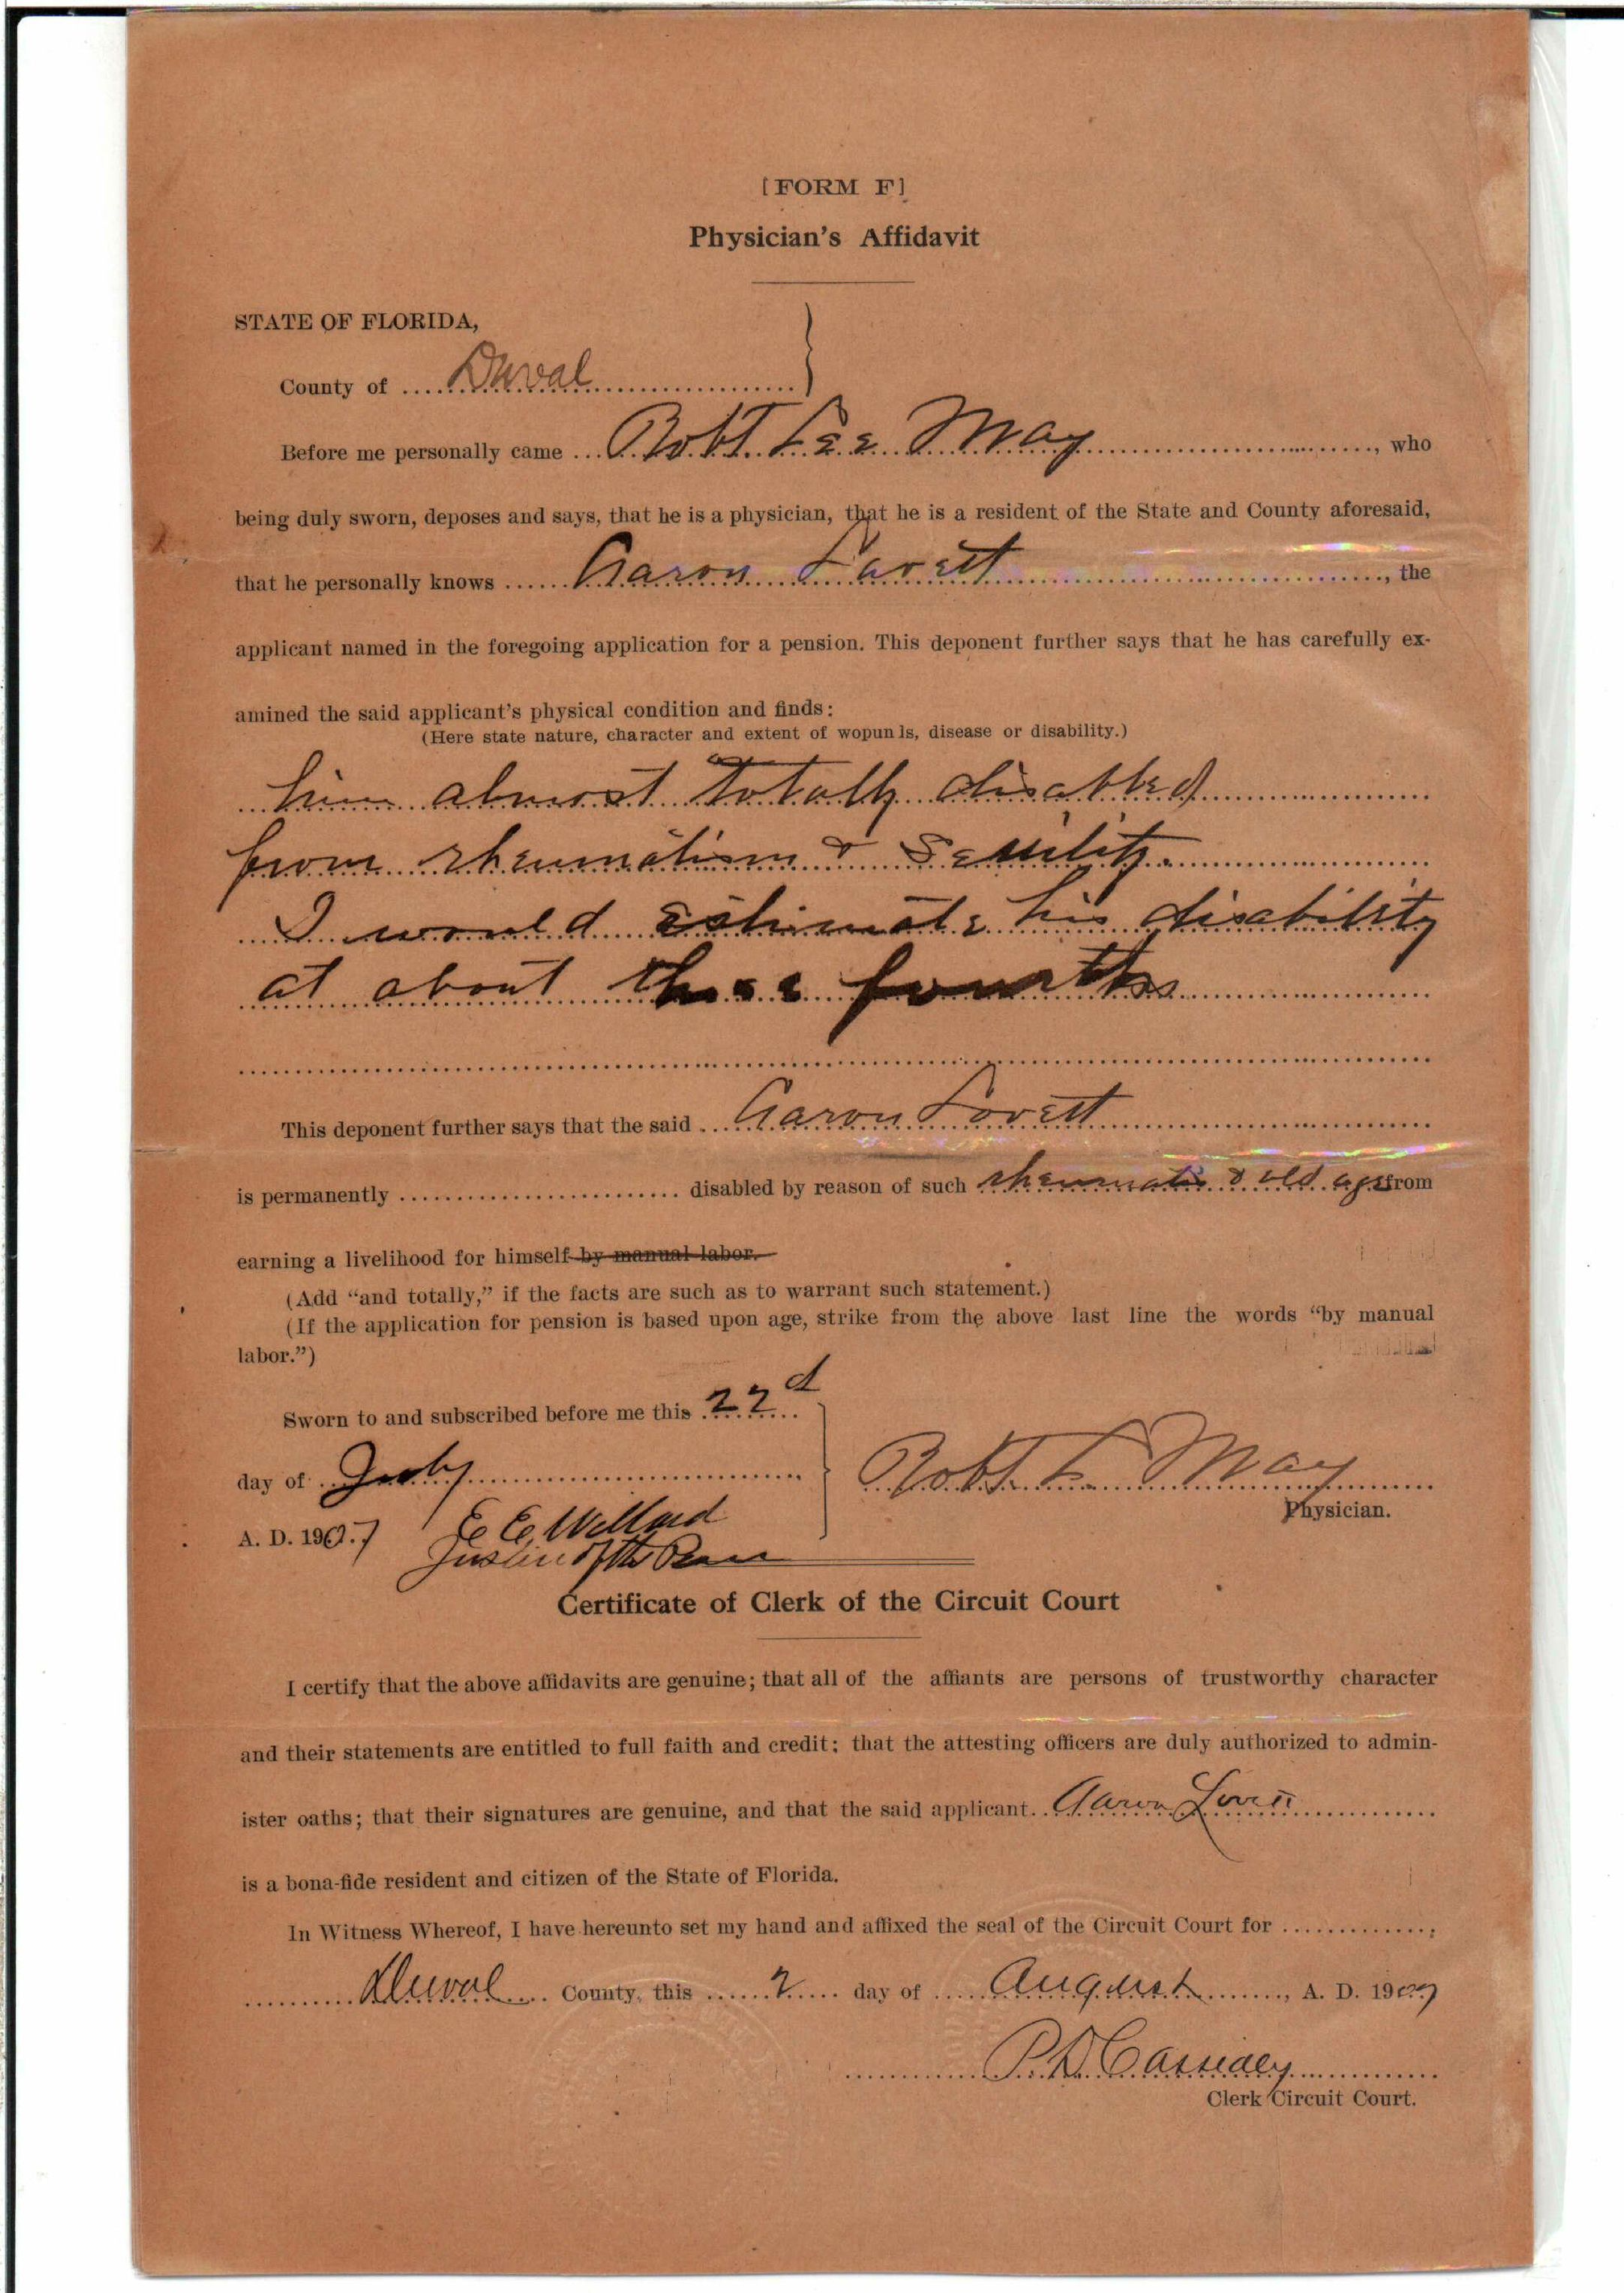 [FORM F]
Physician's Affidavit
STATE OF FLORIDA,
County of Duval
Before me personally came Robt. Lee May, who
being duly sworn, deposes and says, that he is a physician, that he is a resident of the State and County aforesaid,
that he personally knows Aaron Lovett, the
applicant named in the foregoing application for a pension. This deponent further says that he has carefully ex-
amined the said applicant's physical condition and finds:
(Here state nature, character and extent of wopun ls, disease or disability.)
him almost totally disabled
from rheumatism & Senility.
I would Estimate his disability
at about three fourths
This deponent further says that the said Aaron Lovett
is permanently disabled by reason of such rheumatis & old age from
earning a livelihood for himself by manual labor.
(Add "and totally," if the facts are such as to warrant such statement.)
(If the application for pension is based upon age, strike from the above last line the words "by manual
labor.")
Sworn to and subscribed before me this 22d
day of July
Robt. L. May
Physician.
A. D. 1907
E E Willard
Justice of the Peace
Certificate of Clerk of the Circuit Court
I certify that the above affidavits are genuine; that all of the affiants are persons of trustworthy character
and their statements are entitled to full faith and credit; that the attesting officers are duly authorized to admin-
ister oaths; that their signatures are genuine, and that the said applicant Aaron Lovett
is a bona-fide resident and citizen of the State of Florida.
In Witness Whereof, I have hereunto set my hand and affixed the seal of the Circuit Court for
Duval County, this 2 day of August, A. D. 1907
P. D. Cassidey
Clerk Circuit Court.